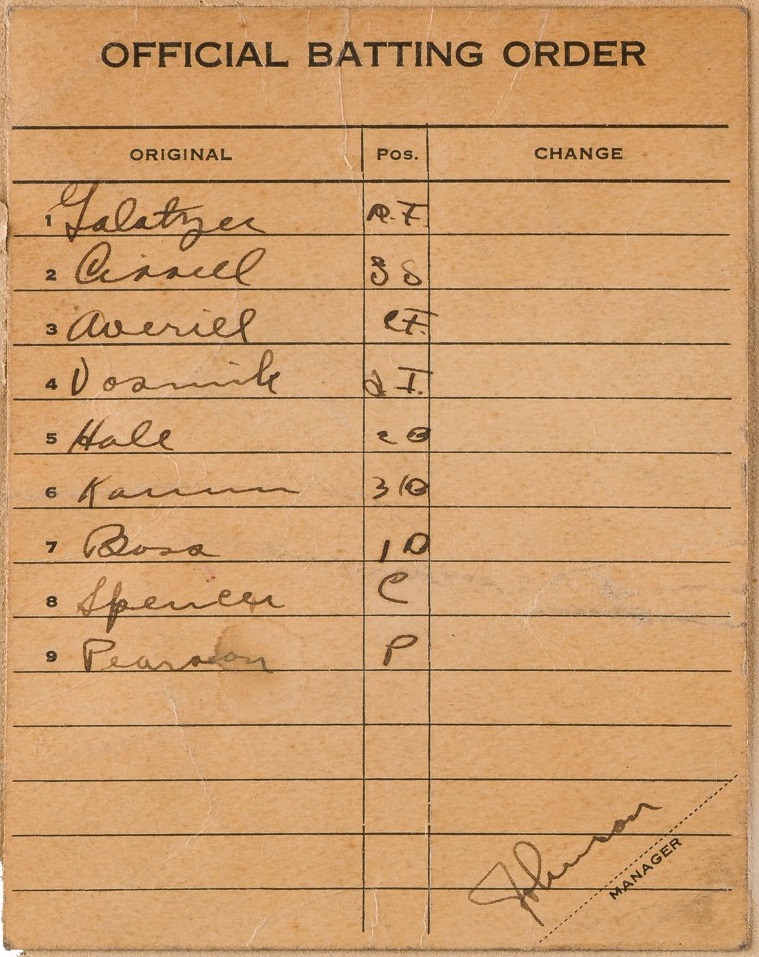 OFFICIAL BATTING ORDER
ORIGINAL Pos. CHANGE
1 Galatzer R.F.
2 Cissell SS
3 Averill CF.
4 Vosmik L F.
5 Hale 2B
6 Kamm 3B
7 Boss 1B
8 Spencer C
9 Pearson P
Johnson
MANAGER